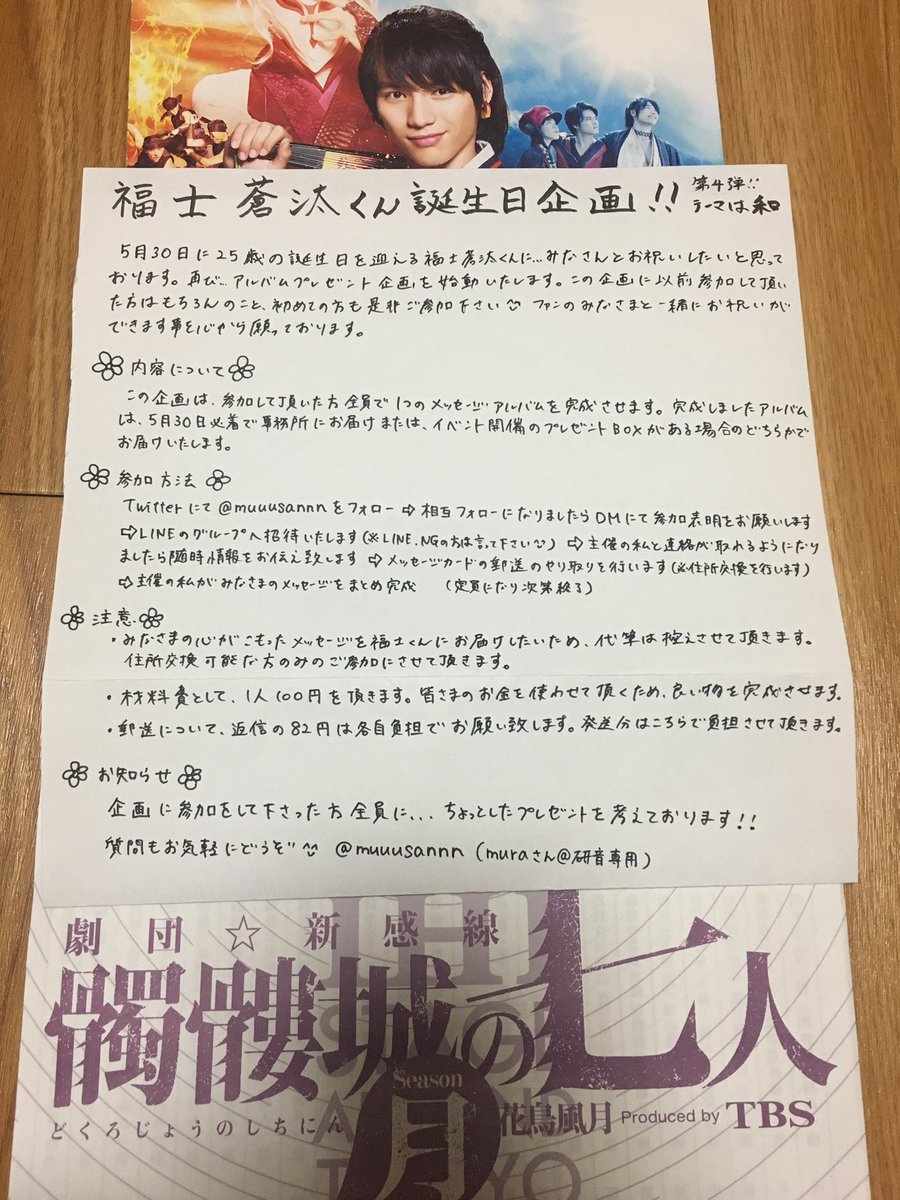 福士蒼汰くん誕生日企画!! 第4弾!!
テーマは和
5月30日に25歳の誕生日を迎える福士蒼汰くんに...みなさんとお祝いしたいと思って
おります。再び...アルバムプレゼント企画を始動いたします。この企画に以前参加して頂い
た方はもちろんのこと、初めての方も是非ご参加下さい ファンのみなさまと一緒にお祝いが
できます事を心から願っております。
内容について
この企画は、参加して頂いた方全員で1つのメッセージアルバムを完成させます。完成しましたアルバム
は、5月30日必着で事務所にお届けまたは、イベント開催のプレゼントBOXがある場合のどちらかで
お届けいたします。
参加方法
Twitterにて@muuusannnをフォロー⇨相互フォローになりましたらDMにて参加表明をお願いします
⇨LINEのグループへ招待いたします(※LINE.NGの方は言って下さい) ⇨主催の私と連絡が取れるようになり
ましたら随時情報をお伝え致します ⇨メッセージカードの郵送のやり取りを行います(必住所交換を行します)
⇨主催の私がみなさまのメッセージをまとめ完成 (定員になり次第終了)
注意
・みなさまの心がこもったメッセージを福士くんにお届けしたいため、代筆は控えさせて頂きます。
住所交換可能な方のみのご参加にさせて頂きます。
・材料費として、1人100円を頂きます。皆さまのお金を使わせて頂くため、良い物を完成させます。
・郵送について、返信の82円は各自負担でお願い致します。発送分はこちらで負担させて頂きます。
お知らせ
企画に参加をして下さった方全員に...ちょっとしたプレゼントを考えております!!
質問もお気軽にどうぞ @muuusannn (muraさん@研音専用)
劇団☆新感線
髑髏城の七人
Season
月
どくろじょうのしちにん
花鳥風月 Produced by TBS